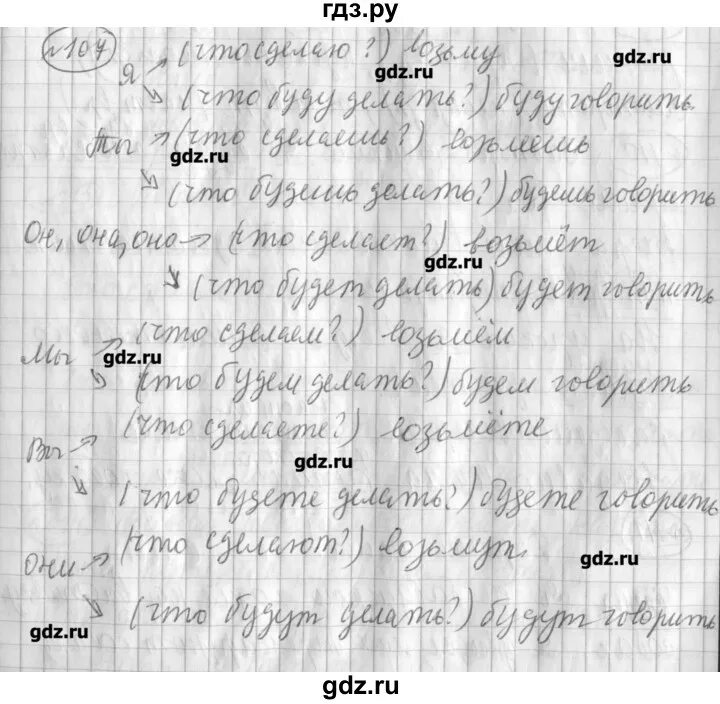 гдз.ру
№107
Я → (что сделаю?) возьму
gdz.ru gdz.ru
↘ (что буду делать?) буду говорить.
Ты → (что сделаешь?) возьмешь
gdz.ru
↘ (что будешь делать?) будешь говорить
Он, она, оно → (что сделает?) возьмёт
gdz.ru
↘ (что будет делать) будет говорить
Мы → (что сделаем?) возьмём
gdz.ru
↘ (что будем делать?) будем говорить
Вы → (что сделаете?) возьмёте
gdz.ru
↘ (что будете делать?) будете говорить
они → (что сделают?) возьмут,
gdz.ru
↘ (что будут делать?) будут говорить
gdz.ru
gdz.ru